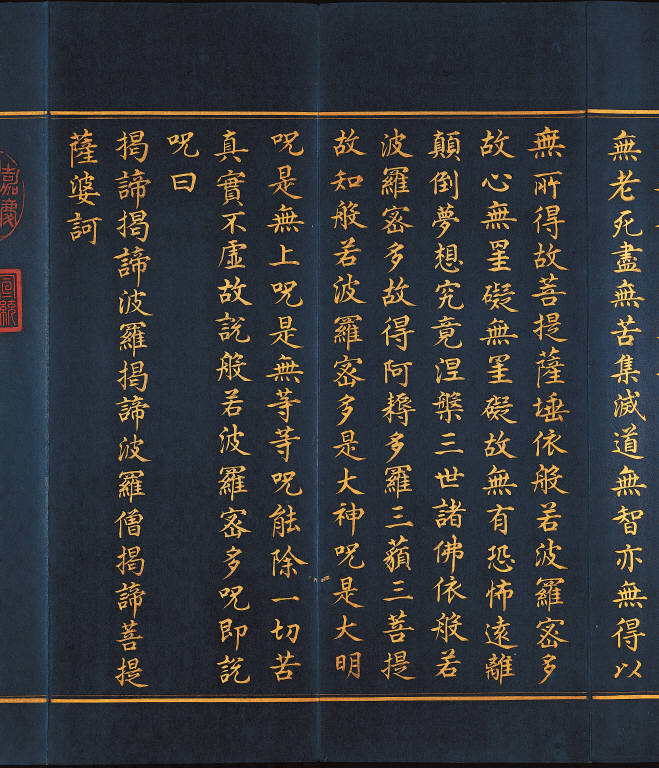 無老死盡無苦集滅道無智亦無得以
無所得故菩提薩埵依般若波羅密多
故心無罣礙無罣礙故無有恐怖遠離
顛倒夢想究竟涅槃三世諸佛依般若
波羅密多故得阿耨多羅三藐三菩提
故知般若波羅密多是大神呪是大明
呪是無上呪是無等等呪能除一切苦
真實不虛故說般若波羅密多呪即說
呪曰
揭諦揭諦波羅揭諦波羅僧揭諦菩提
薩婆訶
嘉慶